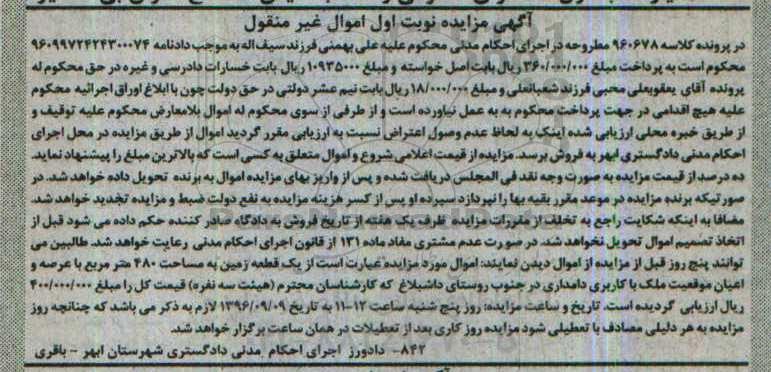 آگهی مزایده نوبت اول اموال غیر منقول
در پرونده کلاسه ۹۶۰۶۷۸ مطروحه در اجرای احکام مدنی محکوم علیه علی بهمنی فرزند سیف اله به موجب دادنامه ۹۶۰۹۹۷۲۴۲۴۳۰۰۰۷۴
محکوم است به پرداخت مبلغ ۳۶۰/۰۰۰/۰۰۰ ریال بابت اصل خواسته و مبلغ ۱۰۹۳۵۰۰۰ ریال بابت خسارات دادرسی و غیره در حق محکوم له
پرونده آقای یعقوبعلی محبی فرزند شعبانعلی و مبلغ ۱۸/۰۰۰/۰۰۰ ریال بابت نیم عشر دولتی در حق دولت چون با ابلاغ اوراق اجرائیه محکوم
علیه هیچ اقدامی در جهت پرداخت محکوم به به عمل نیاورده است و از طرفی از سوی محکوم له اموال بلامعارض محکوم علیه توقیف و
از طریق خبره محلی ارزیابی شده اینک به لحاظ عدم وصول اعتراض نسبت به ارزیابی مقرر گردید اموال از طریق مزایده در محل اجرای
احکام مدنی دادگستری ابهر به فروش برسد. مزایده از قیمت اعلامی شروع و اموال متعلق به کسی است که بالاترین مبلغ را پیشنهاد نماید.
ده درصد از قیمت مزایده به صورت وجه نقد فی المجلس دریافت شده و پس از واریز بهای مزایده اموال به برنده تحویل داده خواهد شد. در
صورتیکه برنده مزایده در موعد مقرر بقیه بها را نپردازد سپرده او پس از کسر هزینه مزایده به نفع دولت ضبط و مزایده تجدید خواهد شد.
مضافا به اینکه شکایت راجع به تخلف از مقررات مزایده ظرف یک هفته از تاریخ فروش به دادگاه صادر کننده حکم داده می شود قبل از
اتخاذ تصمیم اموال تحویل نخواهد شد. در صورت عدم مشتری مفاد ماده ۱۳۱ از قانون اجرای احکام مدنی رعایت خواهد شد. طالبین می
توانند پنج روز قبل از مزایده از اموال دیدن نمایند: اموال مورد مزایده عبارت است از یک قطعه زمین به مساحت ۴۸۰ متر مربع با عرصه و
اعیان موقعیت ملک با کاربری دامداری در جنوب روستای داشبلاغ که کارشناسان محترم (هیئت سه نفره) قیمت کل را مبلغ ۴۰۰/۰۰۰/۰۰۰
ریال ارزیابی گردیده است. تاریخ و ساعت مزایده: روز پنج شنبه ساعت ۱۲-۱۱ به تاریخ ۱۳۹۶/۰۹/۰۹ لازم به ذکر می باشد که چنانچه روز
مزایده به هر دلیلی مصادف با تعطیلی شود مزایده روز کاری بعد از تعطیلات در همان ساعت برگزار خواهد شد.
۸۴۲- دادورز اجرای احکام مدنی دادگستری شهرستان ابهر - باقری